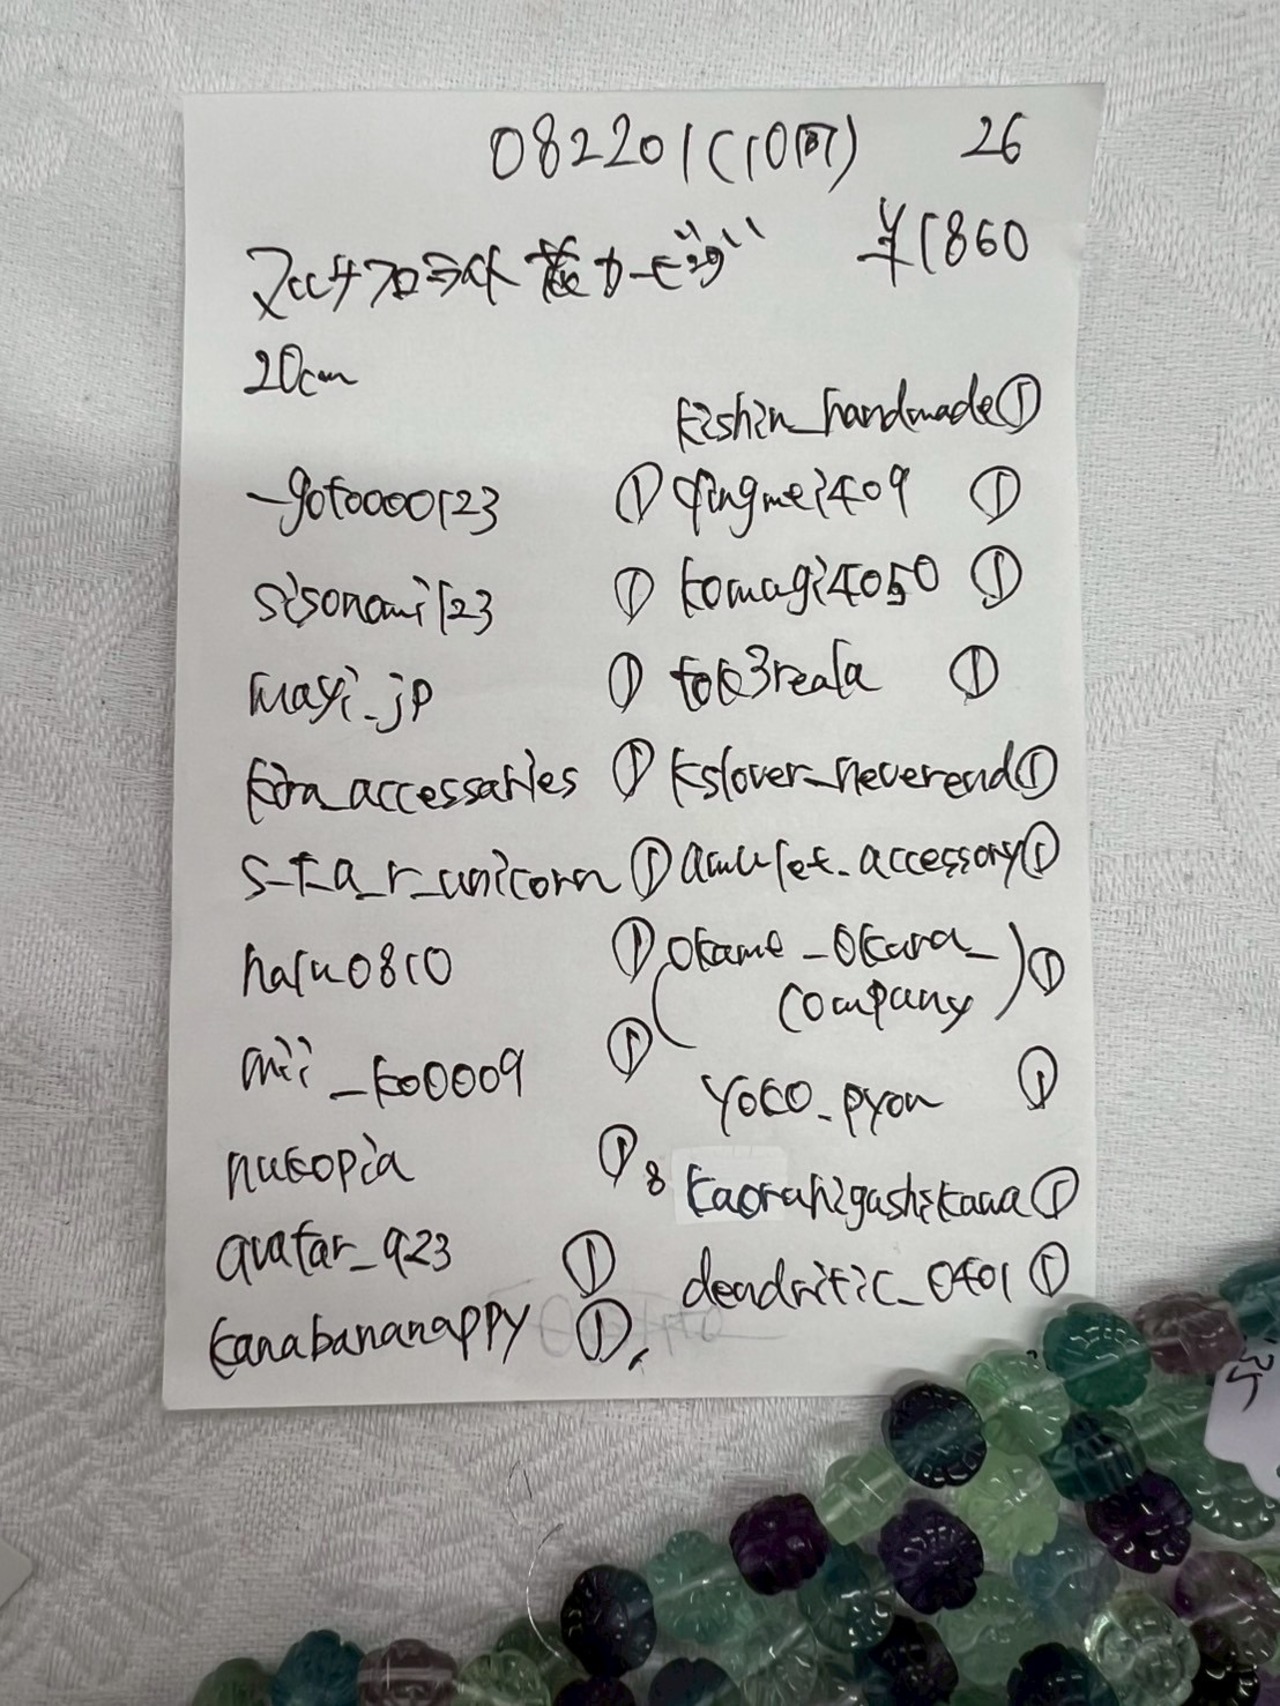 082201(10問) 26
マルチフローライト薔薇カービング ¥1860
20cm
_gotoooo123 ①
sisonami123 ①
mayi_jp ①
kira_accessaries ①
s_t_a_r_unicorn ①
haru0810 ①
mii_ko0009 ①
nukopia ①
avatar_923 ①
kanabananappy ①
kishin_handmade ①
qingmei409 ①
komagi4050 ①
tok3reala ①
kslover_neverend ①
amulet_accessory ①
(okame_okara_
company) ①
yoco_pyon ①
8 kaorahigashikawa ①
dendritic_0401 ①